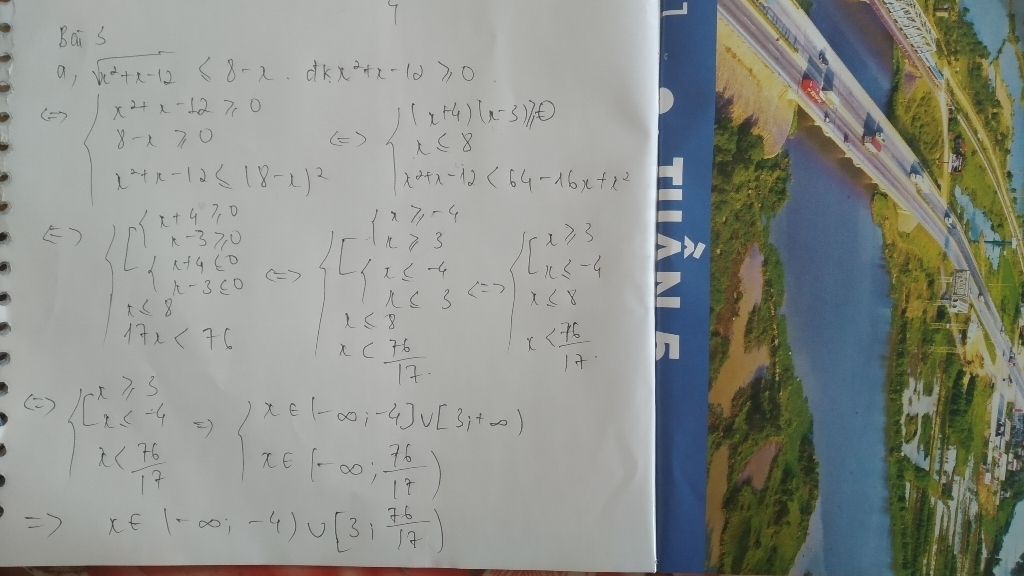 4
Bài 3
a, √x²+x-12 ≤ 8-x. đk x²+x-12 ≥ 0.
<=> { x²+x-12 ≥ 0
8-x ≥ 0
x²+x-12 ≤ (8-x)²
<=> { (x+4)(x-3) ≥ 0
x ≤ 8
x²+x-12 < 64-16x+x²
<=> { [ { x+4 ≥ 0
x-3 ≥ 0
{ x+4 ≤ 0
x-3 ≤ 0
x ≤ 8
17x < 76
<=> { [ { x ≥ -4
x ≥ 3
{ x ≤ -4
x ≤ 3
x ≤ 8
x < 76/17.
<=> { [ x ≥ 3
x ≤ -4
x ≤ 8
x < 76/17.
<=> { [ x ≥ 3
x ≤ -4
x < 76/17
=> { x ∈ (-∞; -4] ∪ [3; +∞)
x ∈ (-∞; 76/17)
=> x ∈ (-∞; -4) ∪ [3; 76/17)
TUẦN 5